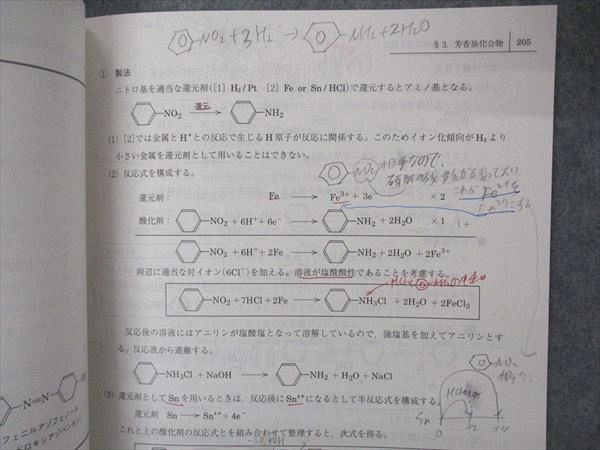 NO₂+3H₂ → NH₂+2H₂O
§3. 芳香族化合物 205
① 製法
ニトロ基を適当な還元剤([1] H₂/Pt [2] Fe or Sn/HCl)で還元するとアミノ基となる。
NO₂ 還元 → NH₂
(1) [2]では金属とH⁺との反応で生じるH原子が反応に関係する。このためイオン化傾向がH₂より
小さい金属を還元剤として用いることはできない。
(2) 反応式を構成する。
NO₂ 相手なので、
還元剤: Fe → Fe³⁺ + 3e⁻ × 2
酸化剤: NO₂ + 6H⁺ + 6e⁻ → NH₂ + 2H₂O × 1 (+
NO₂ + 6H⁺ + 2Fe → NH₂ + 2H₂O + 2Fe³⁺
両辺に適当な対イオン(6Cl⁻)を加える。溶液が塩酸酸性であることを考慮する。
NO₂ + 7HCl + 2Fe → NH₃Cl + 2H₂O + 2FeCl₃
反応後の溶液にはアニリンが塩酸塩となって溶解しているので、強塩基を加えてアニリンとす
る。反応液から遊離する。
NO₂
NH₃Cl + NaOH → NH₂ + H₂O + NaCl
(3) 還元剤としてSnを用いるときは、反応後にSn⁴⁺になるとして半反応式を構成する。
還元剤 Sn → Sn⁴⁺ + 4e⁻
Sn 0
これと上の酸化剤の反応式とを組み合わせて整理すると、次式を得る。
N=N
フェニルアゾフェノール
ドロキシアゾベンゼン